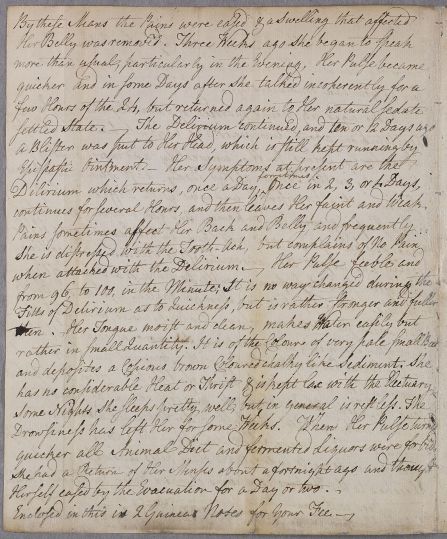 By these Means the Pains were eased & a Swelling that affected
Her Belly was removed. Three Weeks ago she began to speak
more than usual, particularly in the Evening, Her Pulse became
quicker and in some Days after she talked incoherently for a
few Hours of the 24, but returned again to Her natural sedate
settled State. — The Delirium continued, and ten or 12 Days ago
a Blister was put to Her Head, which is still kept running by
Epispastic Ointment — Her Symptoms at present are the
Delirium which returns, once a Day, sometimes once in 2, 3, or 4 Days,
continues for several Hours, and then leaves Her faint and Weak.
Pains sometimes affect Her Back and Belly and frequently
She is distressed with the Tooth-Ach, but complains of No Pain
when attacked with the Delirium — Her Pulse feeble and
from 96 to 100, in the Minute; It is no way changed during the
Fitts of Delirium as to Quickness, but is rather stronger and fuller
then. Her Tongue moist and clean, makes Water easily but
rather in small Quantity. It is of the Colour of very pale small Beer
and deposites a Copious, brown Coloured chalky like Sediment. She
has no considerable Heat or Thirst & is kept lax with the Electuary
Some Nights she sleeps pretty well, but in general is restless. The
Drowsiness has left Her for some Weeks. When Her Pulse turned
quicker all Animal Diet and fermented Liquors were forbid
She had a Return of Her Menses about a fortnight ago and thought
Herself eased by the Evacuation for a Day or two. —
Enclosed in this is 2 Guinea Notes for Your Fee —